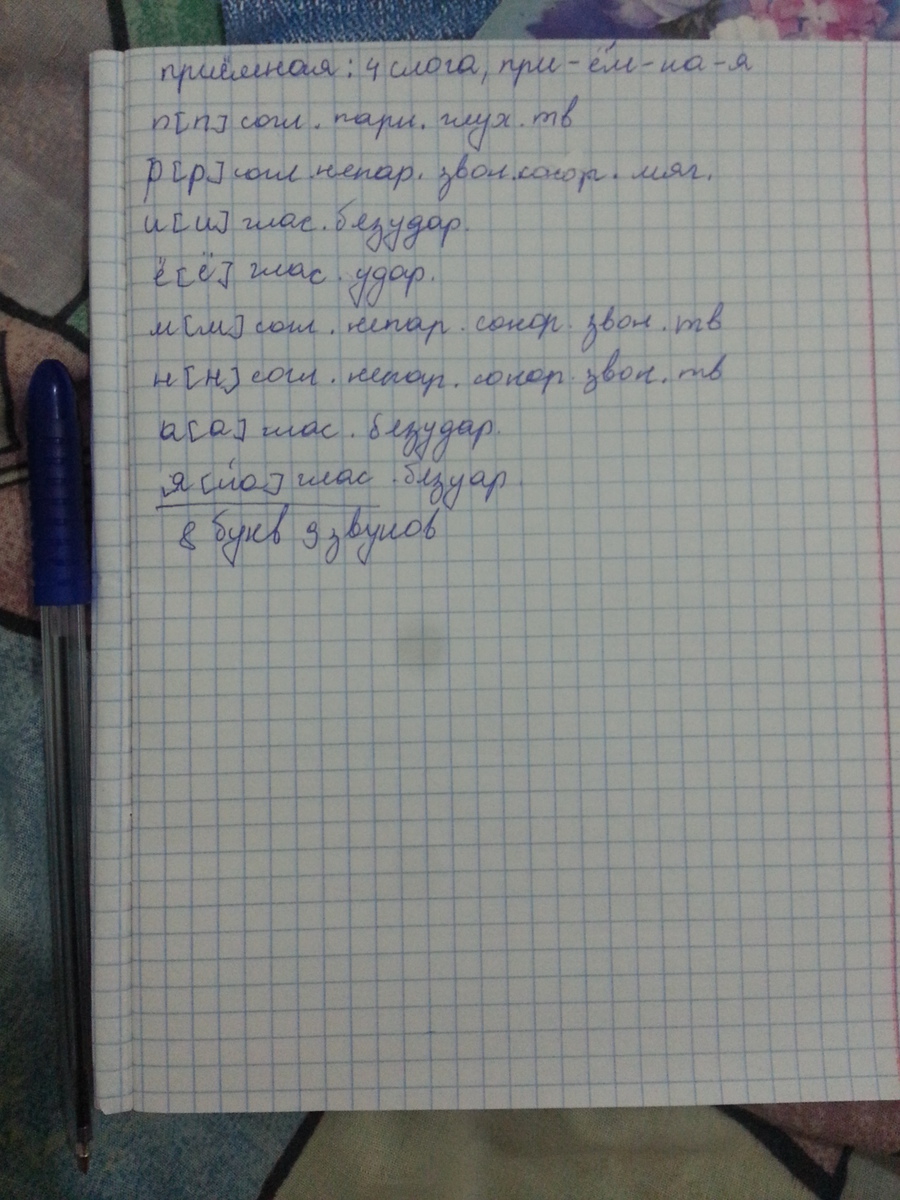 приёмная: 4 слога, при-ём-на-я
п[п] согл. парн. глух. тв
р[р] согл непар. звон.сонор. мяг.
и[и] глас. безудар.
ё[ё] глас. удар.
м[м] согл. непар. сонор. звон. тв
н[н] согл. непар. сонор. звон. тв
а[а] глас. безудар.
я[йа] глас. безуар
8 букв 9 звуков